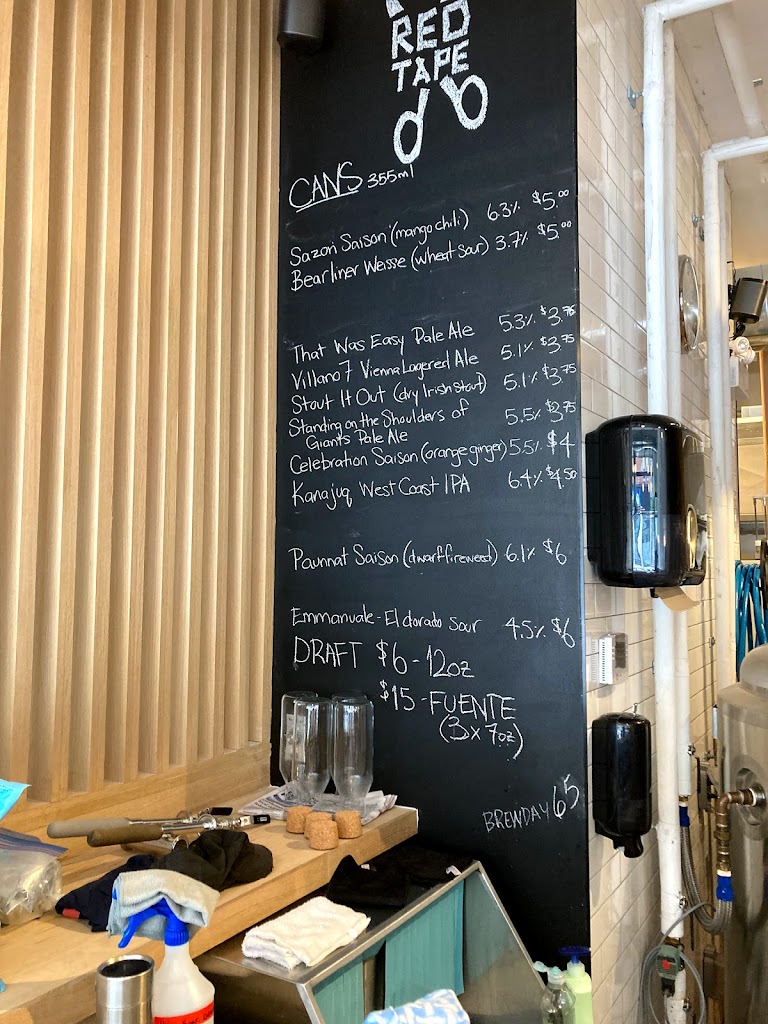 RED
TAPE
CANS 355ml
Sazon Saison (mango chili) 6.3% $5.00
Bearliner Weisse (wheat sour) 3.7% $5.00
That Was Easy Pale Ale 5.3% $3.75
Villano 7 Vienna Lagered Ale 5.1% $3.75
Stout It Out (dry Irish stout) 5.1% $3.75
Standing on the Shoulders of
Giants Pale Ale 5.5% $3.75
Celebration Saison (orange ginger) 5.5% $4
Kanajuq West Coast IPA 6.4% $4.50
Paunnat Saison (dwarf fireweed) 6.1% $6
Emmanuale - El dorado Sour 4.5% $6
DRAFT $6 - 12oz
$15 - FUENTE
(3 x 7oz)
BREWDAY 65